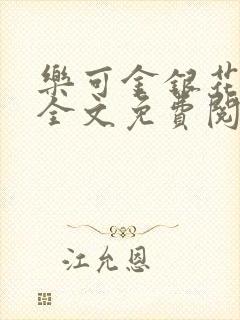 樂可金銀花
全文免費閱
江允恩